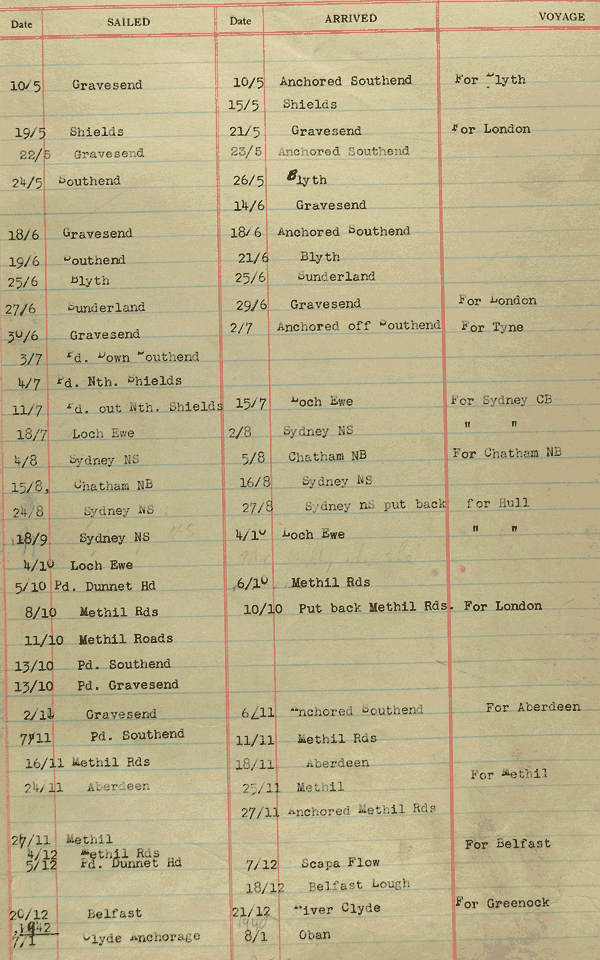 Date SAILED Date ARRIVED VOYAGE
10/5 Gravesend 10/5 Anchored Southend For Blyth
15/5 Shields
19/5 Shields 21/5 Gravesend For London
22/5 Gravesend 23/5 Anchored Southend
24/5 Southend 26/5 Blyth
14/6 Gravesend
18/6 Gravesend 18/6 Anchored Southend
19/6 Southend 21/6 Blyth
25/6 Blyth 25/6 Sunderland
27/6 Sunderland 29/6 Gravesend For London
30/6 Gravesend 2/7 Anchored off Southend For Tyne
3/7 Pd. Down Southend
4/7 Pd. Nth. Shields
11/7 Pd. out Nth. Shields 15/7 Loch Ewe For Sydney CB
18/7 Loch Ewe 2/8 Sydney NS " "
4/8 Sydney NS 5/8 Chatham NB For Chatham NB
15/8, Chatham NB 16/8 Sydney NS
24/8 Sydney NS 27/8 Sydney nS put back for Hull
18/9 Sydney NS 4/10 Loch Ewe " "
4/10 Loch Ewe
5/10 Pd. Dunnet Hd 6/10 Methil Rds
8/10 Methil Rds 10/10 Put back Methil Rds. For London
11/10 Methil Roads
13/10 Pd. Southend
13/10 Pd. Gravesend
2/11 Gravesend 6/11 Anchored Southend For Aberdeen
7/11 Pd. Southend 11/11 Methil Rds
16/11 Methil Rds 18/11 Aberdeen
24/11 Aberdeen 25/11 Methil For Methil
27/11 Anchored Methil Rds
27/11 Methil For Belfast
4/12 Methil Rds
5/12 Pd. Dunnet Hd 7/12 Scapa Flow
18/12 Belfast Lough
20/12 Belfast 21/12 River Clyde For Greenock
1942
7/1 Clyde Anchorage 8/1 Oban